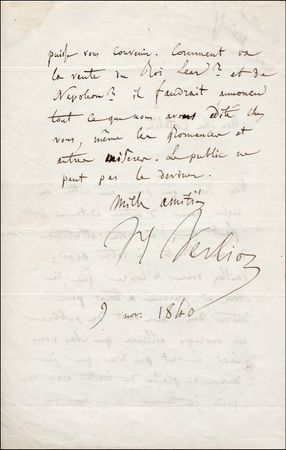 puisse vous convenir. Comment va
la vente du Roi Lear? et de
Napoleon? il faudrait annoncer
tout ce que nous avons édité chez
vous, même les Romances et
autres misères. Le public ne
peut pas le deviner.
Mille amitiés
H Berlioz
9 nov: 1840